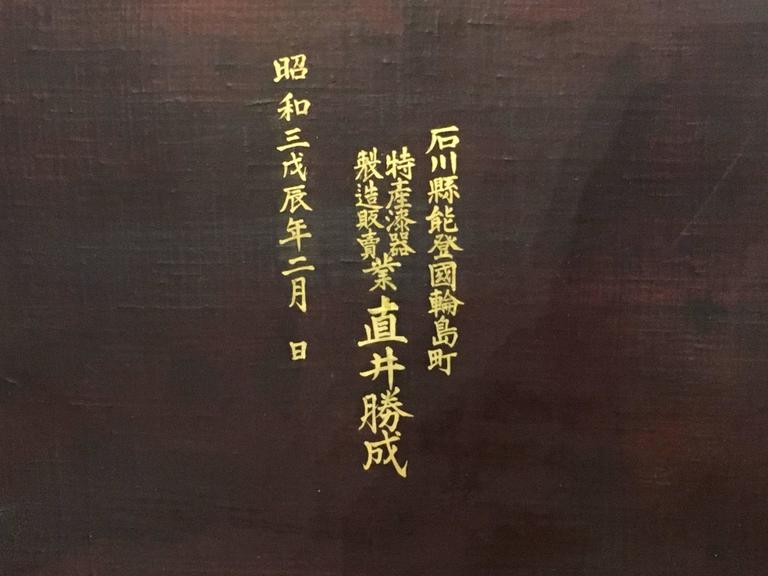 石川縣能登國輪島町
特産漆器
製造販賣
業 直井勝成
昭和三戊辰年二月 日